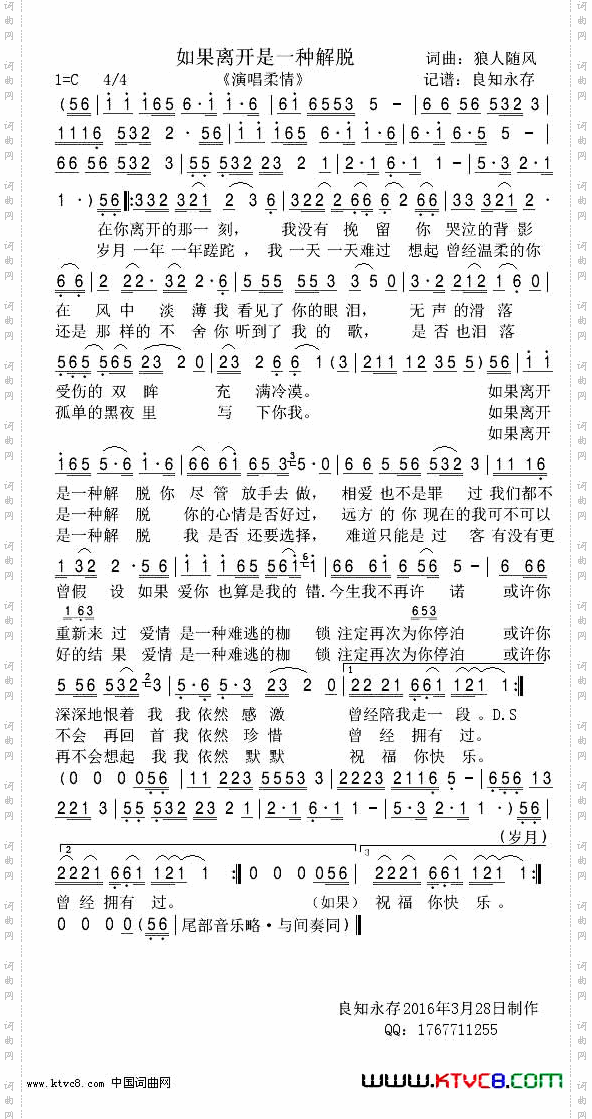 如果离开是一种解脱
词曲：狼人随风
1=C 4/4 《演唱柔情》 记谱：良知永存
(56|1 1 165 6·1 1·6|61 6553 5 -|6 6 56 532 3|
1116 532 2·56|1 1 165 6·1 1·6|6·1 6·5 6 -|
66 56 532 3|55 532 23 2 1|2·1 6·1 1 -|5·3 2·1
1·)56|:332 321 2 3 6|322 2 66 6 2 66|33 321 2·
在你离开的那一刻， 我没有 挽 留 你 哭泣的背 影
岁月 一年 一年蹉跎， 我 一天 一天难过 想起 曾经温柔的你
6 6|2 22·32 2·6|5 55 55 3 3 5 0|3·2 212 1 6 0|
在 风 中 淡 薄 我 看见了 你的眼 泪， 无 声 的 滑 落
还是 那 样的 不 舍 你 听到了 我 的 歌， 是 否 也 泪 落
565 565 23 2 0|23 2 6 6 1(3|211 12 35 5)56|1 1
受伤的 双 眸 充 满冷漠。 如果离开
孤单的黑夜 里 写 下你我。 如果离开
如果离开
165 5·6 1·6|66 61 65 3 3 5·0|6 6 5 56 532 3|11 1 16
是一种解 脱 你 尽 管 放手去 做， 相爱 也 不是 罪 过 我们都 不
是一种解 脱 你的心情是否好过， 远方 的 你 现在的我可不可以
是一种解 脱 我 是 否 还要选择， 难道只能是 过 客 有没有更
1 32 2·56|1 1 165 561 6 1·|66 61 656 5·|6 6
曾假 设 如果 爱你 也算是我的 错.今生我不再许 诺 或许你
1 63 653
重新来 过 爱情 是一种难逃的枷 锁 注定再次为你停泊 或许你
好的结 果 爱情 是一种难逃的枷 锁 注定再次为你停泊 或许你
5 56 532 2 3|5·6 5·3 23 2 0|1 22 21 661 121 1 :|
深深地恨着 我 我 依然 感 激 曾经陪我走一 段 。D.S
不会 再回 首 我 依然 珍 惜 曾 经 拥有 过。
再不会想起 我 我 依然 默 默 祝 福 你快 乐。
(0 0 0 056|11 223 5553 3|2223 2116 5 -|656 13
221 3|55 532 23 2 1|2·1 6·1 1 -|5·3 2·1 1·)56|
(岁月)
2 2221 661 121 1 :|0 0 0 056|3 2221 661 121 1 :|
曾 经 拥有 过。 （如果）祝 福 你快 乐 。
0 0 0 0(56|尾部音乐略·与间奏同)|
良知永存2016年3月28日制作
QQ：1767711255
www.ktvc8.com 中国词曲网
www.KTVC8.com
词曲网